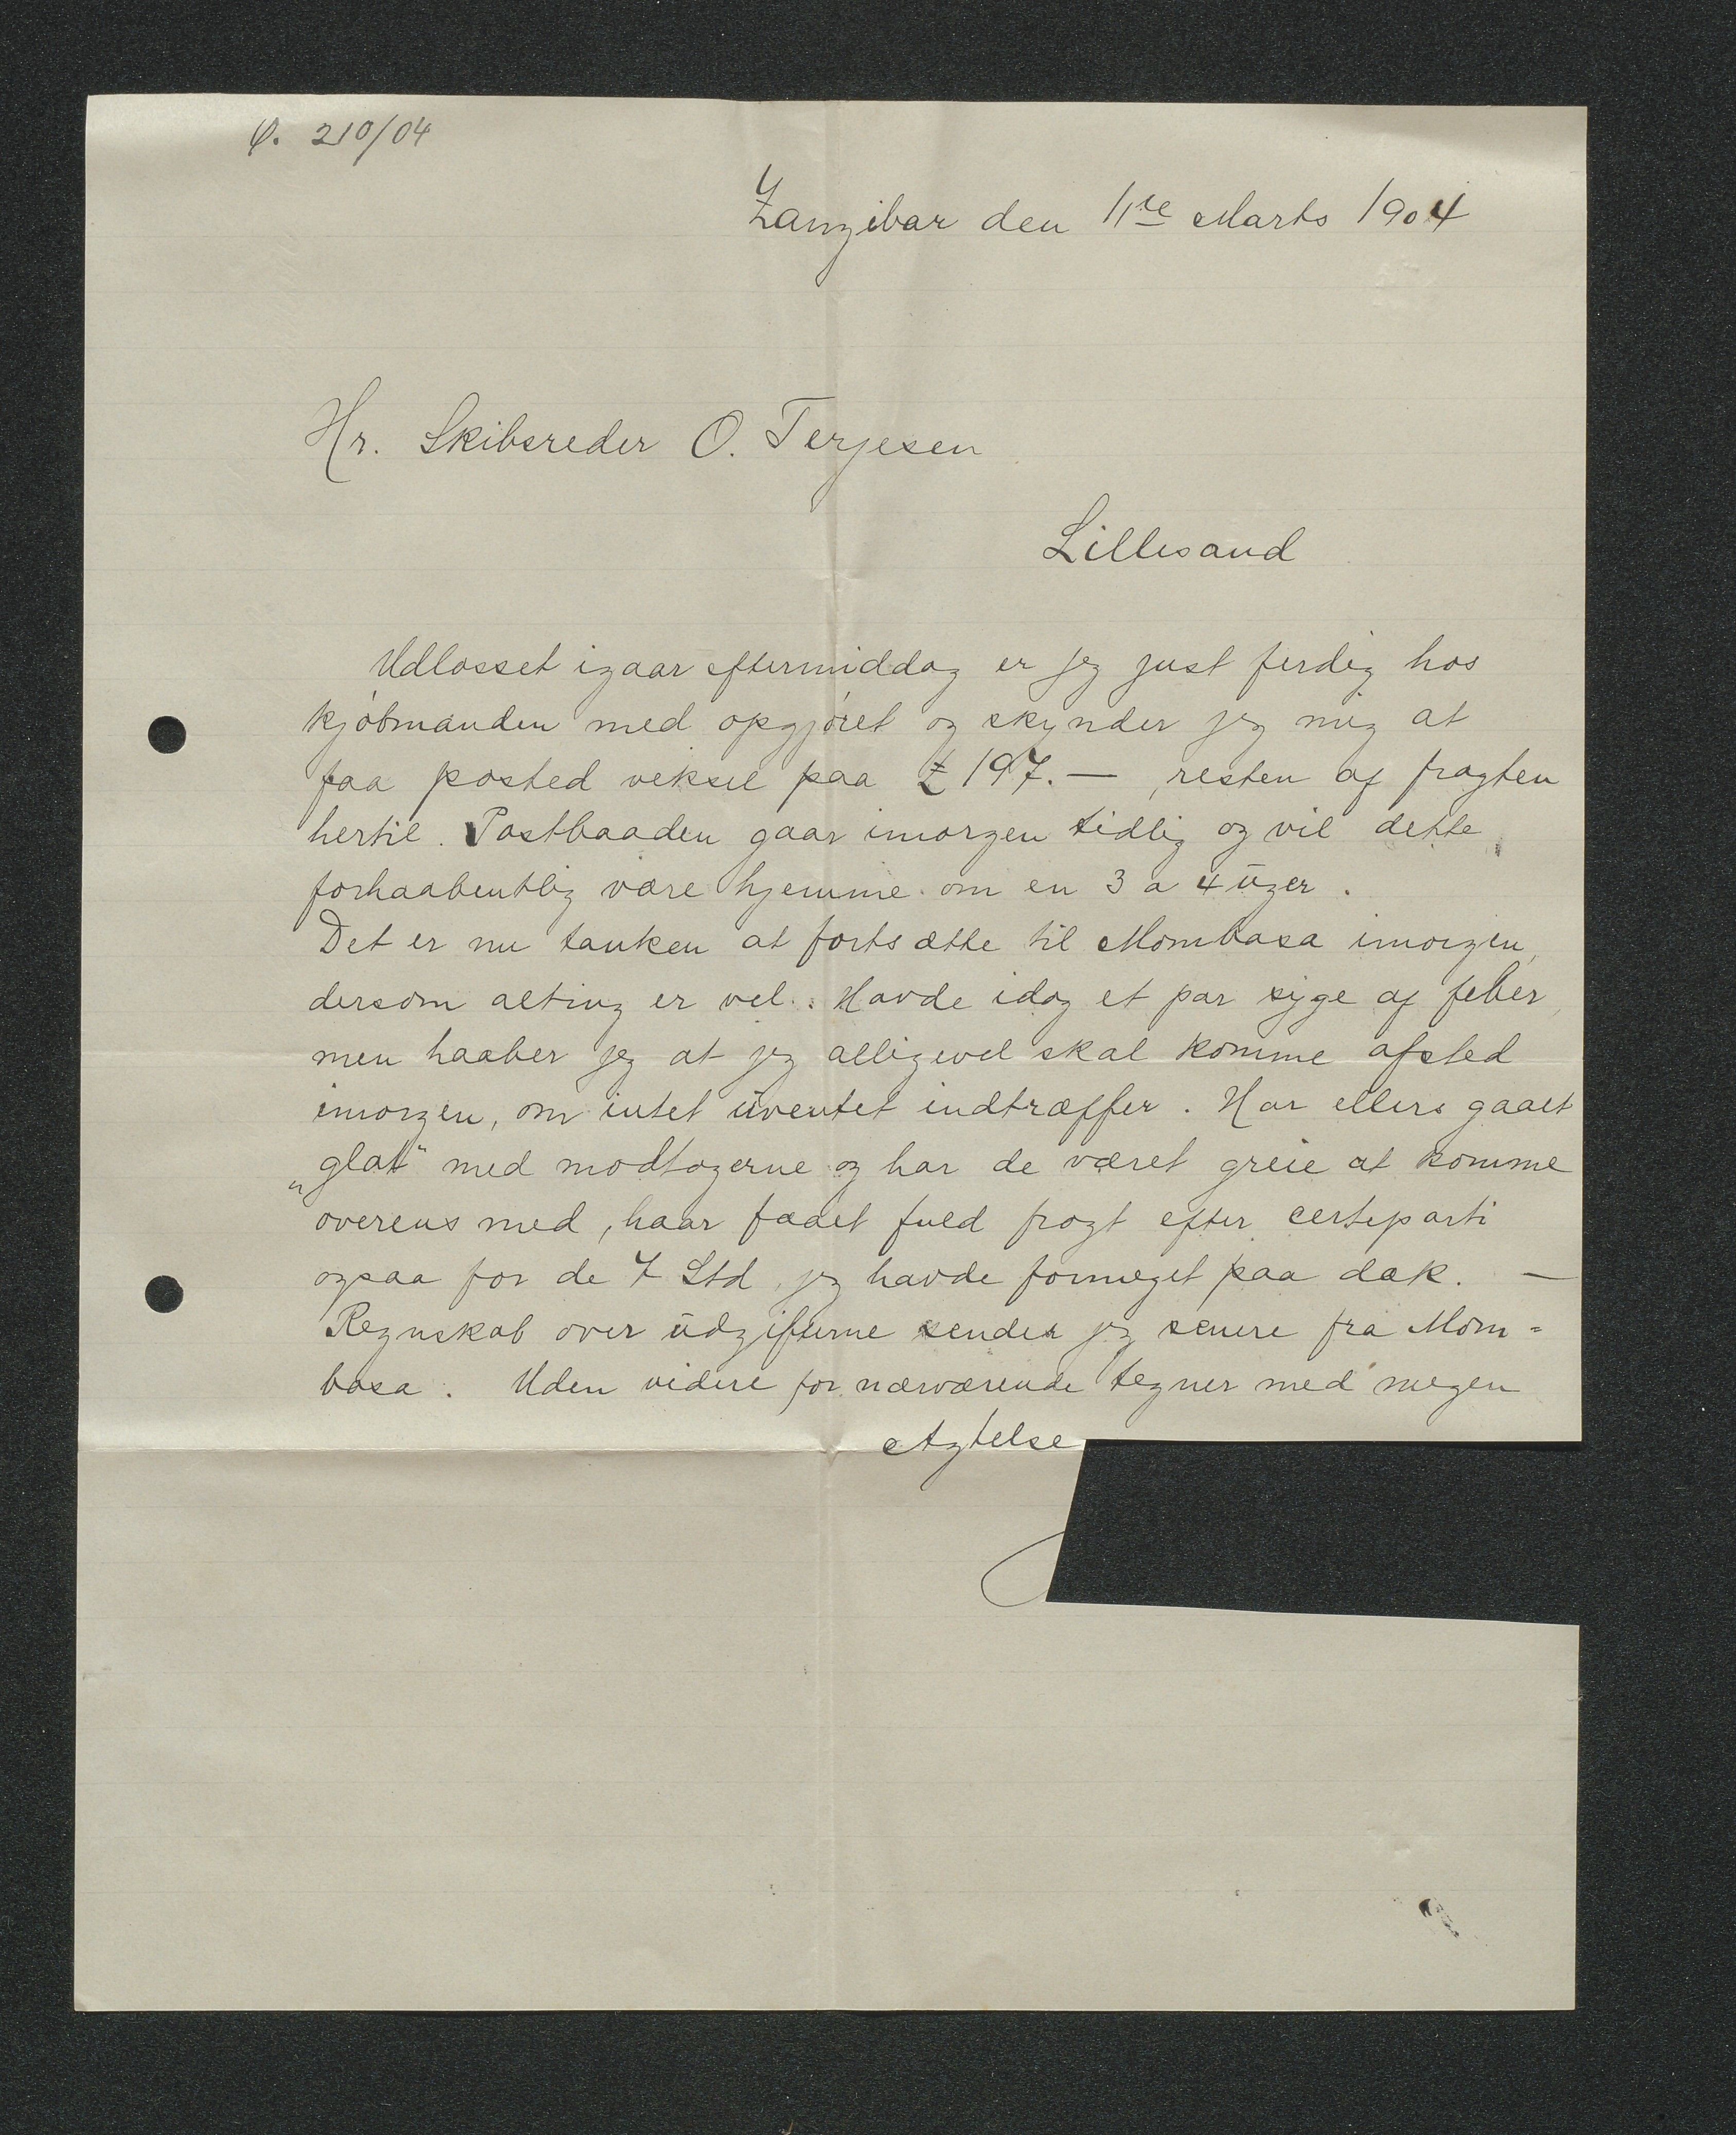 φ. 210/04
Zanzibar den 11te Marts 1904
Hr. Skibsreder O. Terjesen
Lillesand
Udlosset igaar eftermiddag er jeg just ferdig hos
kjøbmanden med opgjøret og skynder jeg mig at
faa posted veksel paa £ 197. — , resten af fragten
hertil. Postbaaden gaar imorgen tidlig og vil dette
forhaabentlig være hjemme om en 3 a 4 uger.
Det er nu tanken at fortsætte til Mombasa imorgen,
dersom alting er vel. Havde idag et par syge af feber,
men haaber jeg at jeg alligevel skal komme afsted
imorgen, om intet uventet indtræffer. Har ellers gaaet
„glat“ med modtagerne og har de været greie at komme
overens med, haar faaet fuld fragt efter certeparti
ogsaa for de 7 Std, jeg havde formeget paa dæk. —
Regnskab over udgifterne sender jeg senere fra Mom=
basa. Uden videre for nærværende tegner med megen
Agtelse